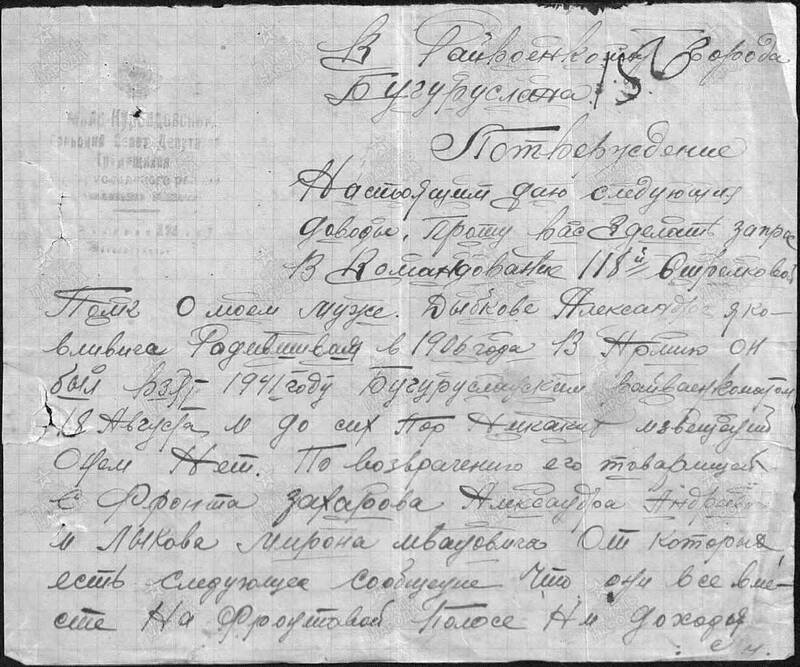 В Райвоенкомат города
Бугуруслана.
Потверждение
Настоящим даю следующия
доводы. Прошу вас Зделать запрос
В Командование 118й Стрелковой
Полк О моем муже. Дыбкове Александре Яко-
вливича Родившвам в 1906 года В Армию он
был взят 1941 году Бугурусланским райваенкоматом
18 Августа и до сих Пор Никаких извещений
Онем Нет. По возврачению его товарищей
с Фронта захарова Александра Андреевич
и Лыкова Мирона ивановича От которых
есть следующее сообщение Что они все вме-
сте На Фронтовой Полосе Ни доходя